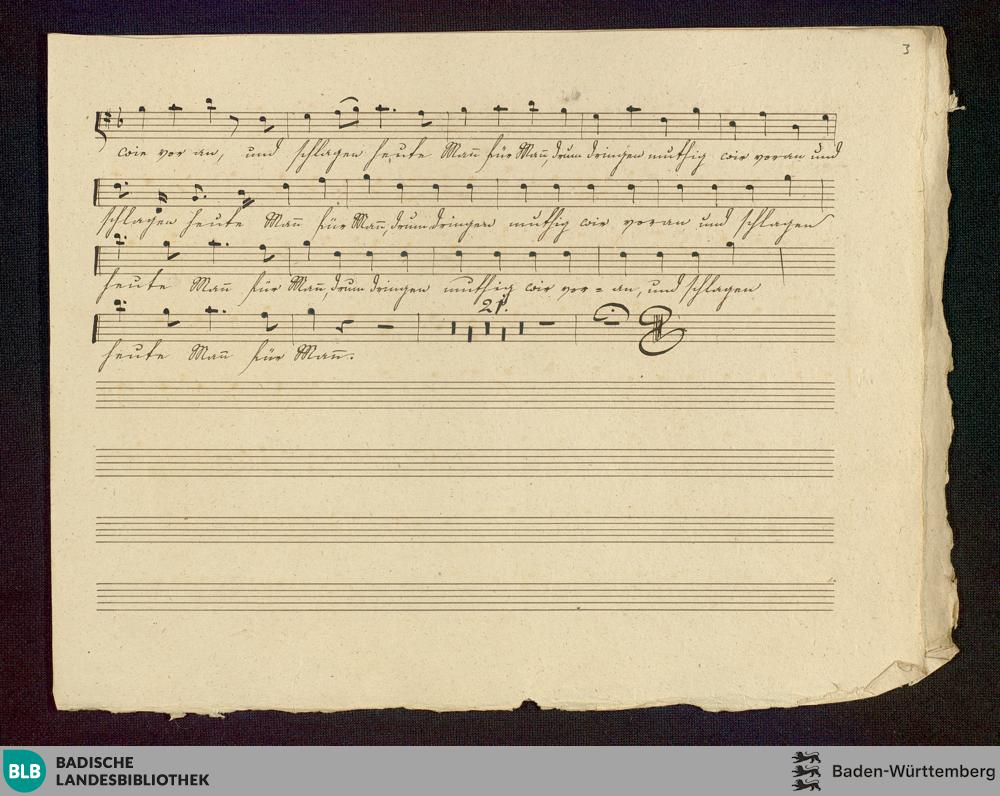 3
wir vor an, und schlagen heute Mañ für Mañ, drum dringen muthig wir voran und
schlagen heute Mañ für Mañ, drum dringen muthig wir voran und schlagen
heute Mañ für Mañ, drum dringen muthig wir vor = an, und schlagen
21.
heute Mañ für Mañ.
BLB BADISCHE
LANDESBIBLIOTHEK
Baden-Württemberg